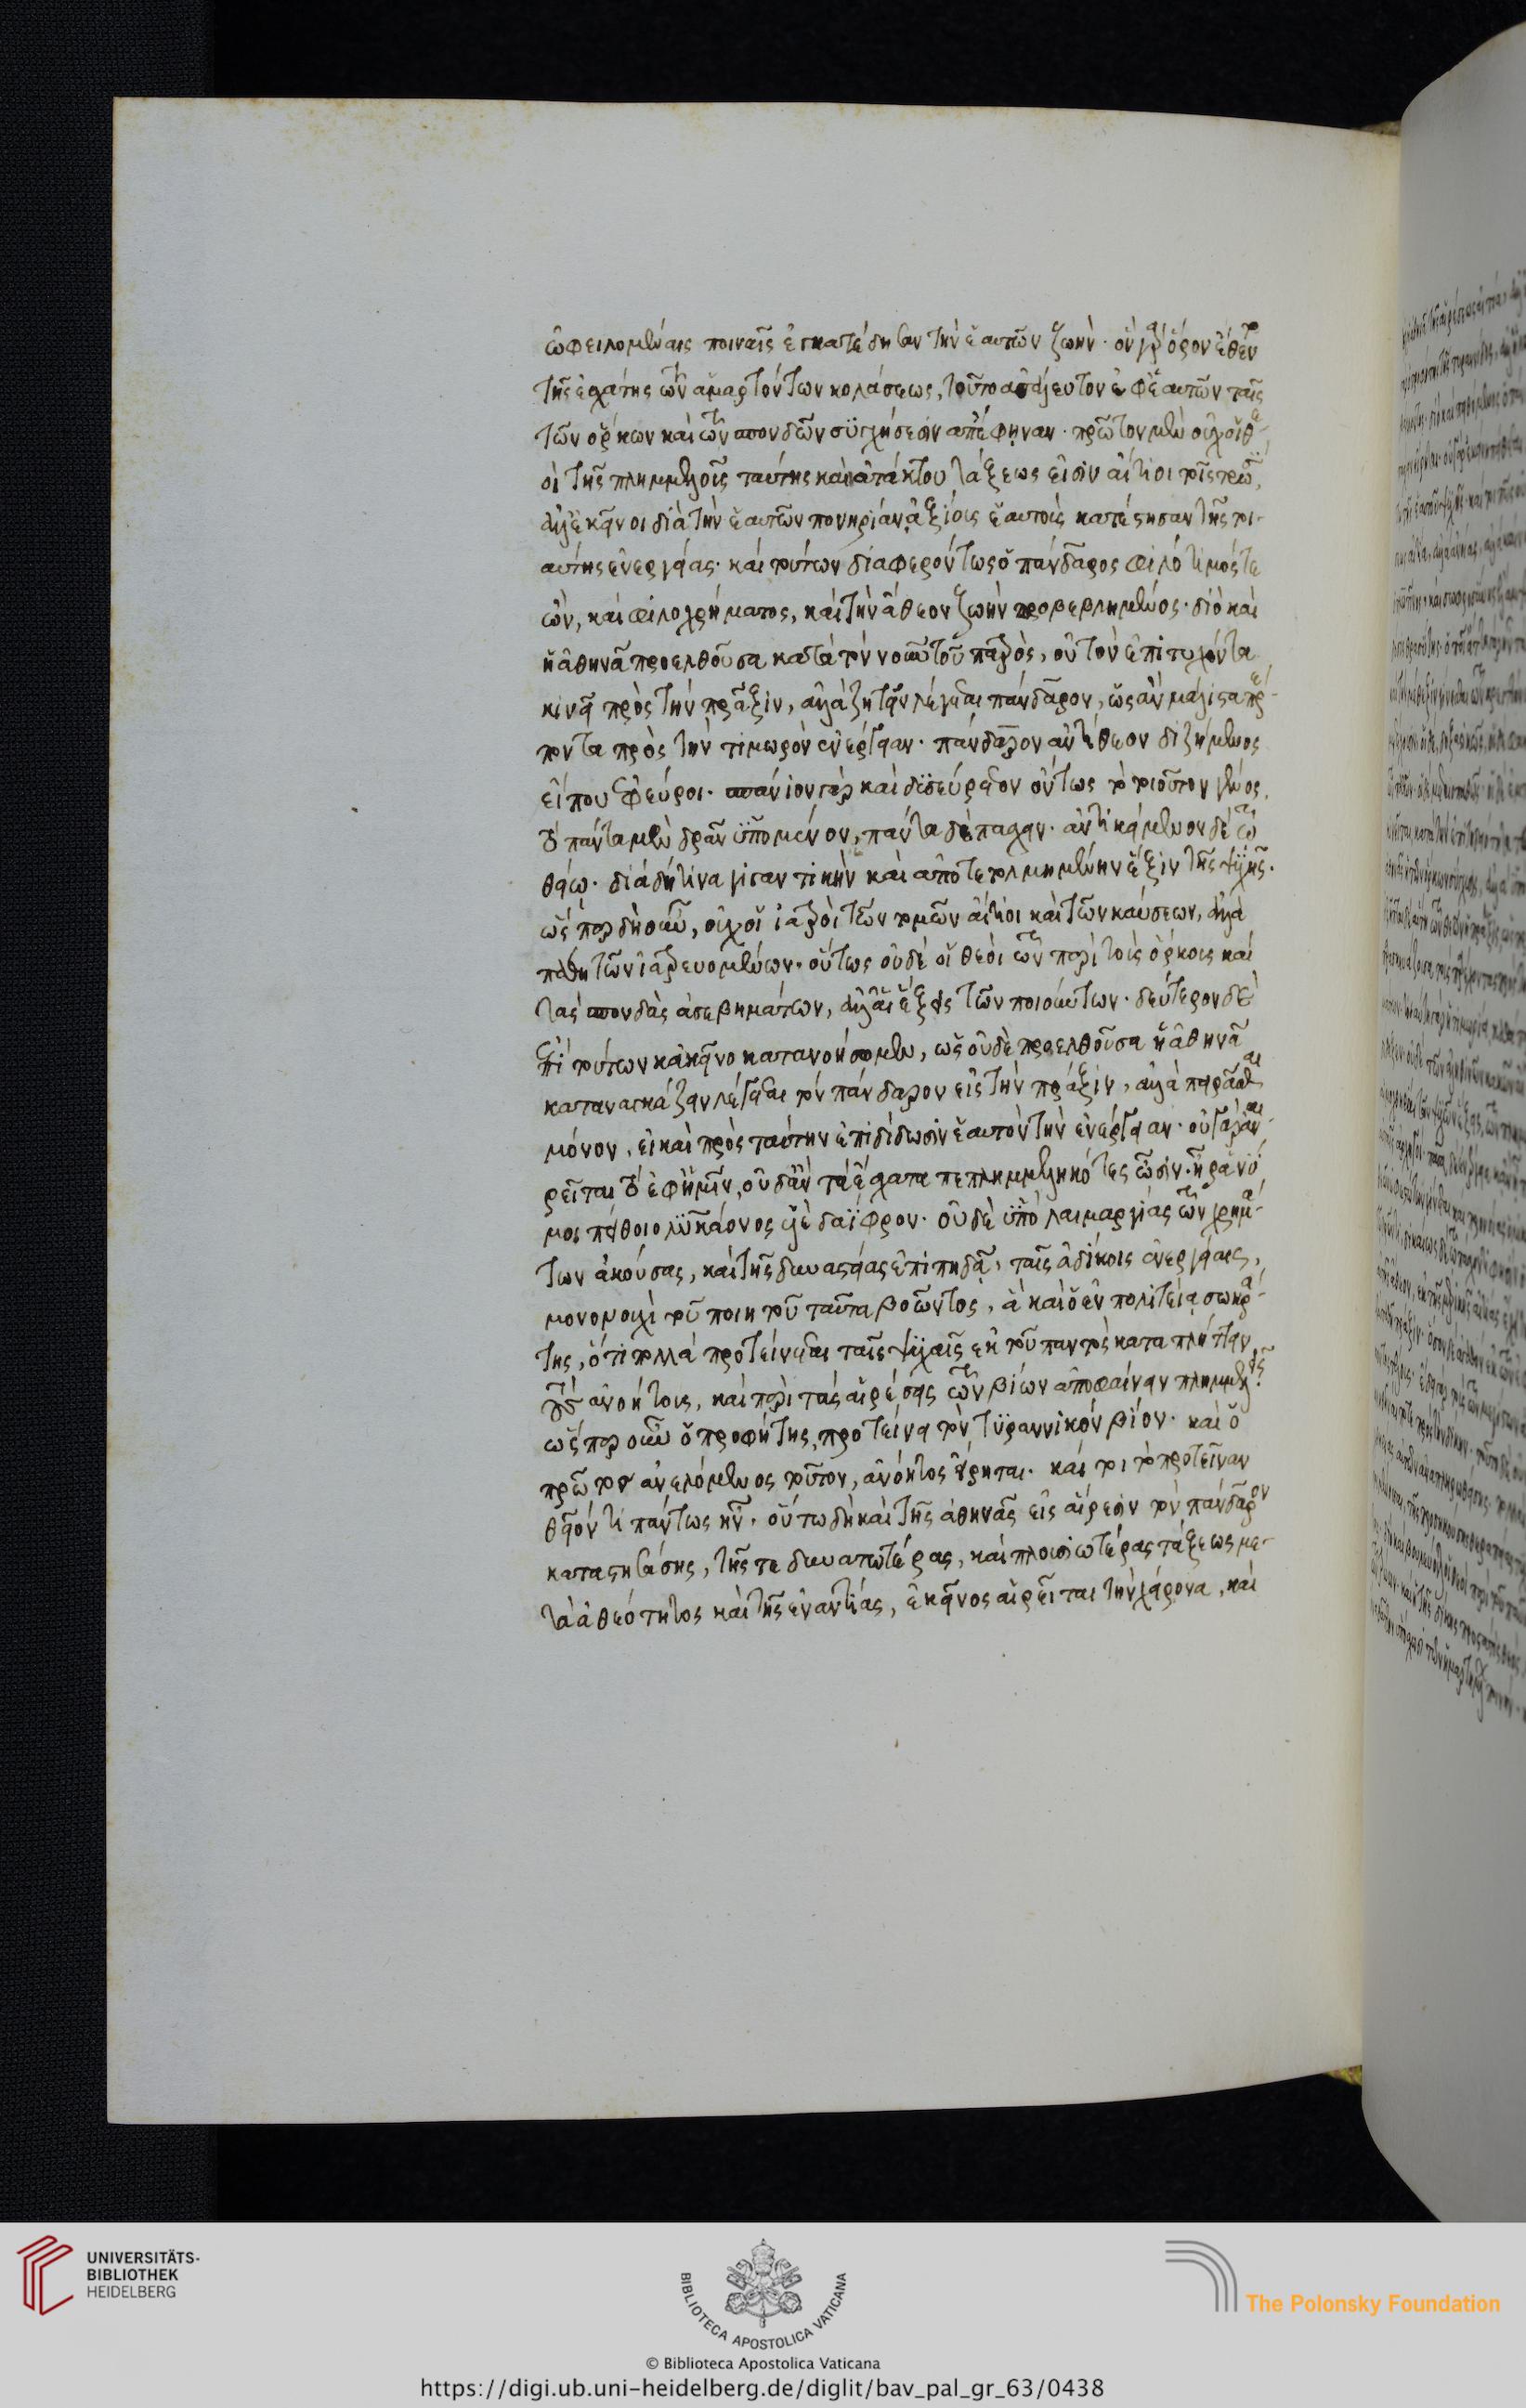 ὀφειλομέναις ποιναῖς ἐγκατέδησαν τὴν ἑαυτῶν ζωήν. ὃν γὰρ ὅρον ἔθεντο
τῆς ἐσχάτης τῶν ἁμαρτόντων κολάσεως, τοῦτον ἀσάλευτον ἐφ' ἑαυτῶν ταῖς
τῶν ὅρκων καὶ τῶν σπονδῶν συγχύσεσιν ἀπέφηναν. πρῶτον μὲν οὐχ οἱ θεοὶ
οἱ τῆς πλημμελοῦς ταύτης καὶ ἀτάκτου τάξεως εἰσὶν αἴτιοι τοῖς τρωσὶν,
ἀλλ' ἐκεῖνοι διὰ τὴν ἑαυτῶν πονηρίαν ἀξίους ἑαυτοὺς κατέστησαν τῆς τοι-
αύτης ἐνεργείας. καὶ τούτων διαφερόντως ὁ πάνδαρος φιλότιμός τε
ὢν, καὶ φιλοχρήματος, καὶ τὴν ἄθεον ζωὴν προβεβλημένος. διὸ καὶ
ἡ ἀθηνᾶ προελθοῦσα κατὰ τὸν νοῦν τοῦ πατρὸς, οὐ τὸν ἐπιτυχόντα
κινεῖ πρὸς τὴν πρᾶξιν, ἀλλὰ ζητεῖν λέγεται πάνδαρον, ὡς ἂν μάλιστα πρέ-
ποντα πρὸς τὴν τιμωρὸν ἐνέργειαν. πάνδαρον ἀντίθεον διζημένος
εἴ που ἐφεύροι. σπάνιον γὰρ καὶ δυσεύρετον ὄντως τὸ τοιοῦτον γένος,
τὸ πάντα μὲν δρᾶν ὑπομένον, πάντα δὲ πάσχειν. ἀντικείμενον δὲ τῷ
θείῳ. διὰ δή τινα γιγαντικὴν καὶ ἀποτετολμημένην ἕξιν τῆς ψυχῆς.
ὥσπερ δὴ οὖν, οὐχ οἱ ἰατροὶ τῶν τομῶν αἴτιοι καὶ τῶν καύσεων, ἀλλὰ
πάθη τῶν ἰατρευομένων. οὕτως οὐδὲ οἱ θεοὶ τῶν περὶ τοὺς ὅρκους καὶ
τὰς σπονδὰς ἀσεβημάτων, ἀλλ' αἱ ἕξεις τῶν ποιούντων. δεύτερον δὲ
ἐπὶ τούτων κἀκεῖνο κατανοήσομεν, ὡς οὐδὲ προελθοῦσα ἡ ἀθηνᾶ
καταναγκάζειν λέγεται τὸν πάνδαρον εἰς τὴν πρᾶξιν, ἀλλὰ πειρᾶσθαι
μόνον, εἰ καὶ πρὸς ταύτην ἐπιδίδωσιν ἑαυτὸν τὴν ἐνέργειαν. οὐ γὰρ ἀναι-
ρεῖται τὸ ἐφ' ἡμῖν, οὐδ' ἂν τὰ ἔσχατα πεπλημμεληκότες ὦσιν. ἦ ῥά νύ
μοι πείθοιο λυκάονος υἱὲ δαΐφρον. ὁ δὲ ὑπὸ λαιμαργίας τῶν χρημά-
των ἀκούσας, καὶ τῆς δυναστείας ἐπιπηδᾷ, ταῖς ἀδίκοις ἐνεργείαις,
μονονουχὶ τοῦ ποιητοῦ ταῦτα βοῶντος, ἃ καὶ ὁ ἐν πολιτείᾳ σωκρά-
της, ὅτι πολλὰ προτείνεται ταῖς ψυχαῖς ἐκ τοῦ παντὸς καταπλήττειν
τοὺς ἀνοήτους, καὶ περὶ τὰς αἱρέσεις τῶν βίων ἀποφαίνειν πλημμελεῖς.
ὥσπερ οὖν ὁ προφήτης προτείνει τὸν τυραννικὸν βίον. καὶ ὁ
πρῶτον ἀνελόμενος τοῦτον, ἀνόητος εἴρηται. καί τοι τὸ προτεῖναν
θεῖόν τι πάντως ἦν. οὕτω δὴ καὶ τῆς ἀθηνᾶς εἰς αἵρεσιν τὸν πάνδαρον
καταστησάσης, τῆς τε δυνατωτέρας, καὶ πλουσιωτέρας τάξεως με-
τὰ ἀθεότητος καὶ τῆς ἐναντίας, ἐκεῖνος αἱρεῖται τὴν χείρονα, καὶ
UNIVERSITÄTS-
BIBLIOTHEK
HEIDELBERG
BIBLIOTECA APOSTOLICA VATICANA
The Polonsky Foundation
© Biblioteca Apostolica Vaticana
https://digi.ub.uni-heidelberg.de/diglit/bav_pal_gr_63/0438